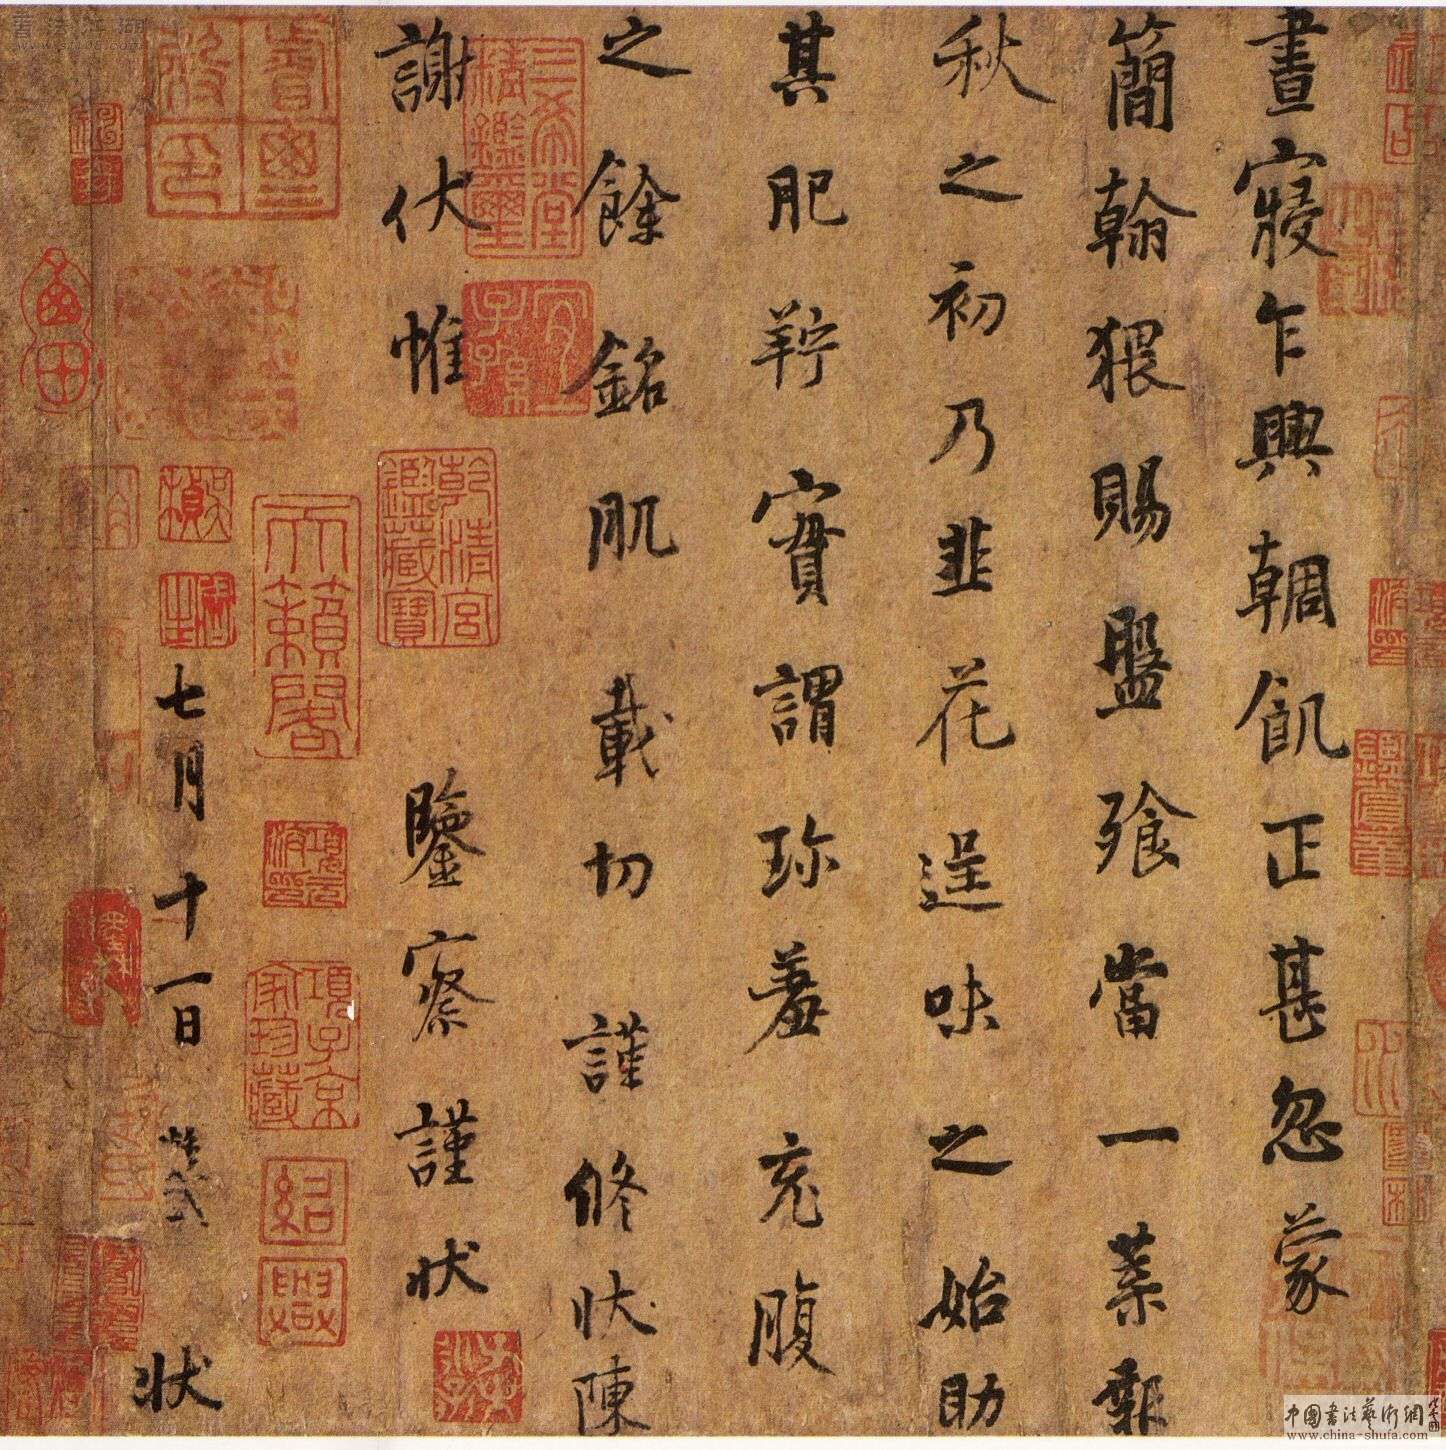 晝寢乍興輖飢正甚忽蒙
簡翰猥賜盤飧當一葉報
秋之初乃韭花逞味之始助
其肥羜實謂珍羞充腹
之餘銘肌載切謹修狀陳
謝伏惟鑒察謹狀
七月十一日狀
三希堂精鑑璽
宜子孫
乾清宮鑑藏寶
天籟閣
項元汴印
項子京家珍藏
紹興
吳楨
書法江湖
中國書法藝術網
www.china-shufa.com